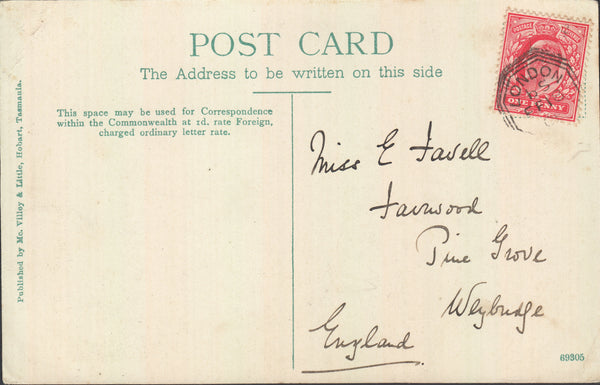 POST CARD
The Address to be written on this side
This space may be used for Correspondence
within the Commonwealth at 1d. rate Foreign,
charged ordinary letter rate.
Published by Mc. Villey & Little, Hobart, Tasmania.
POSTAGE REVENUE
ONE PENNY
LONDON
Miss E Favell
Fairwood
Pine Grove
Weybridge
England
69305